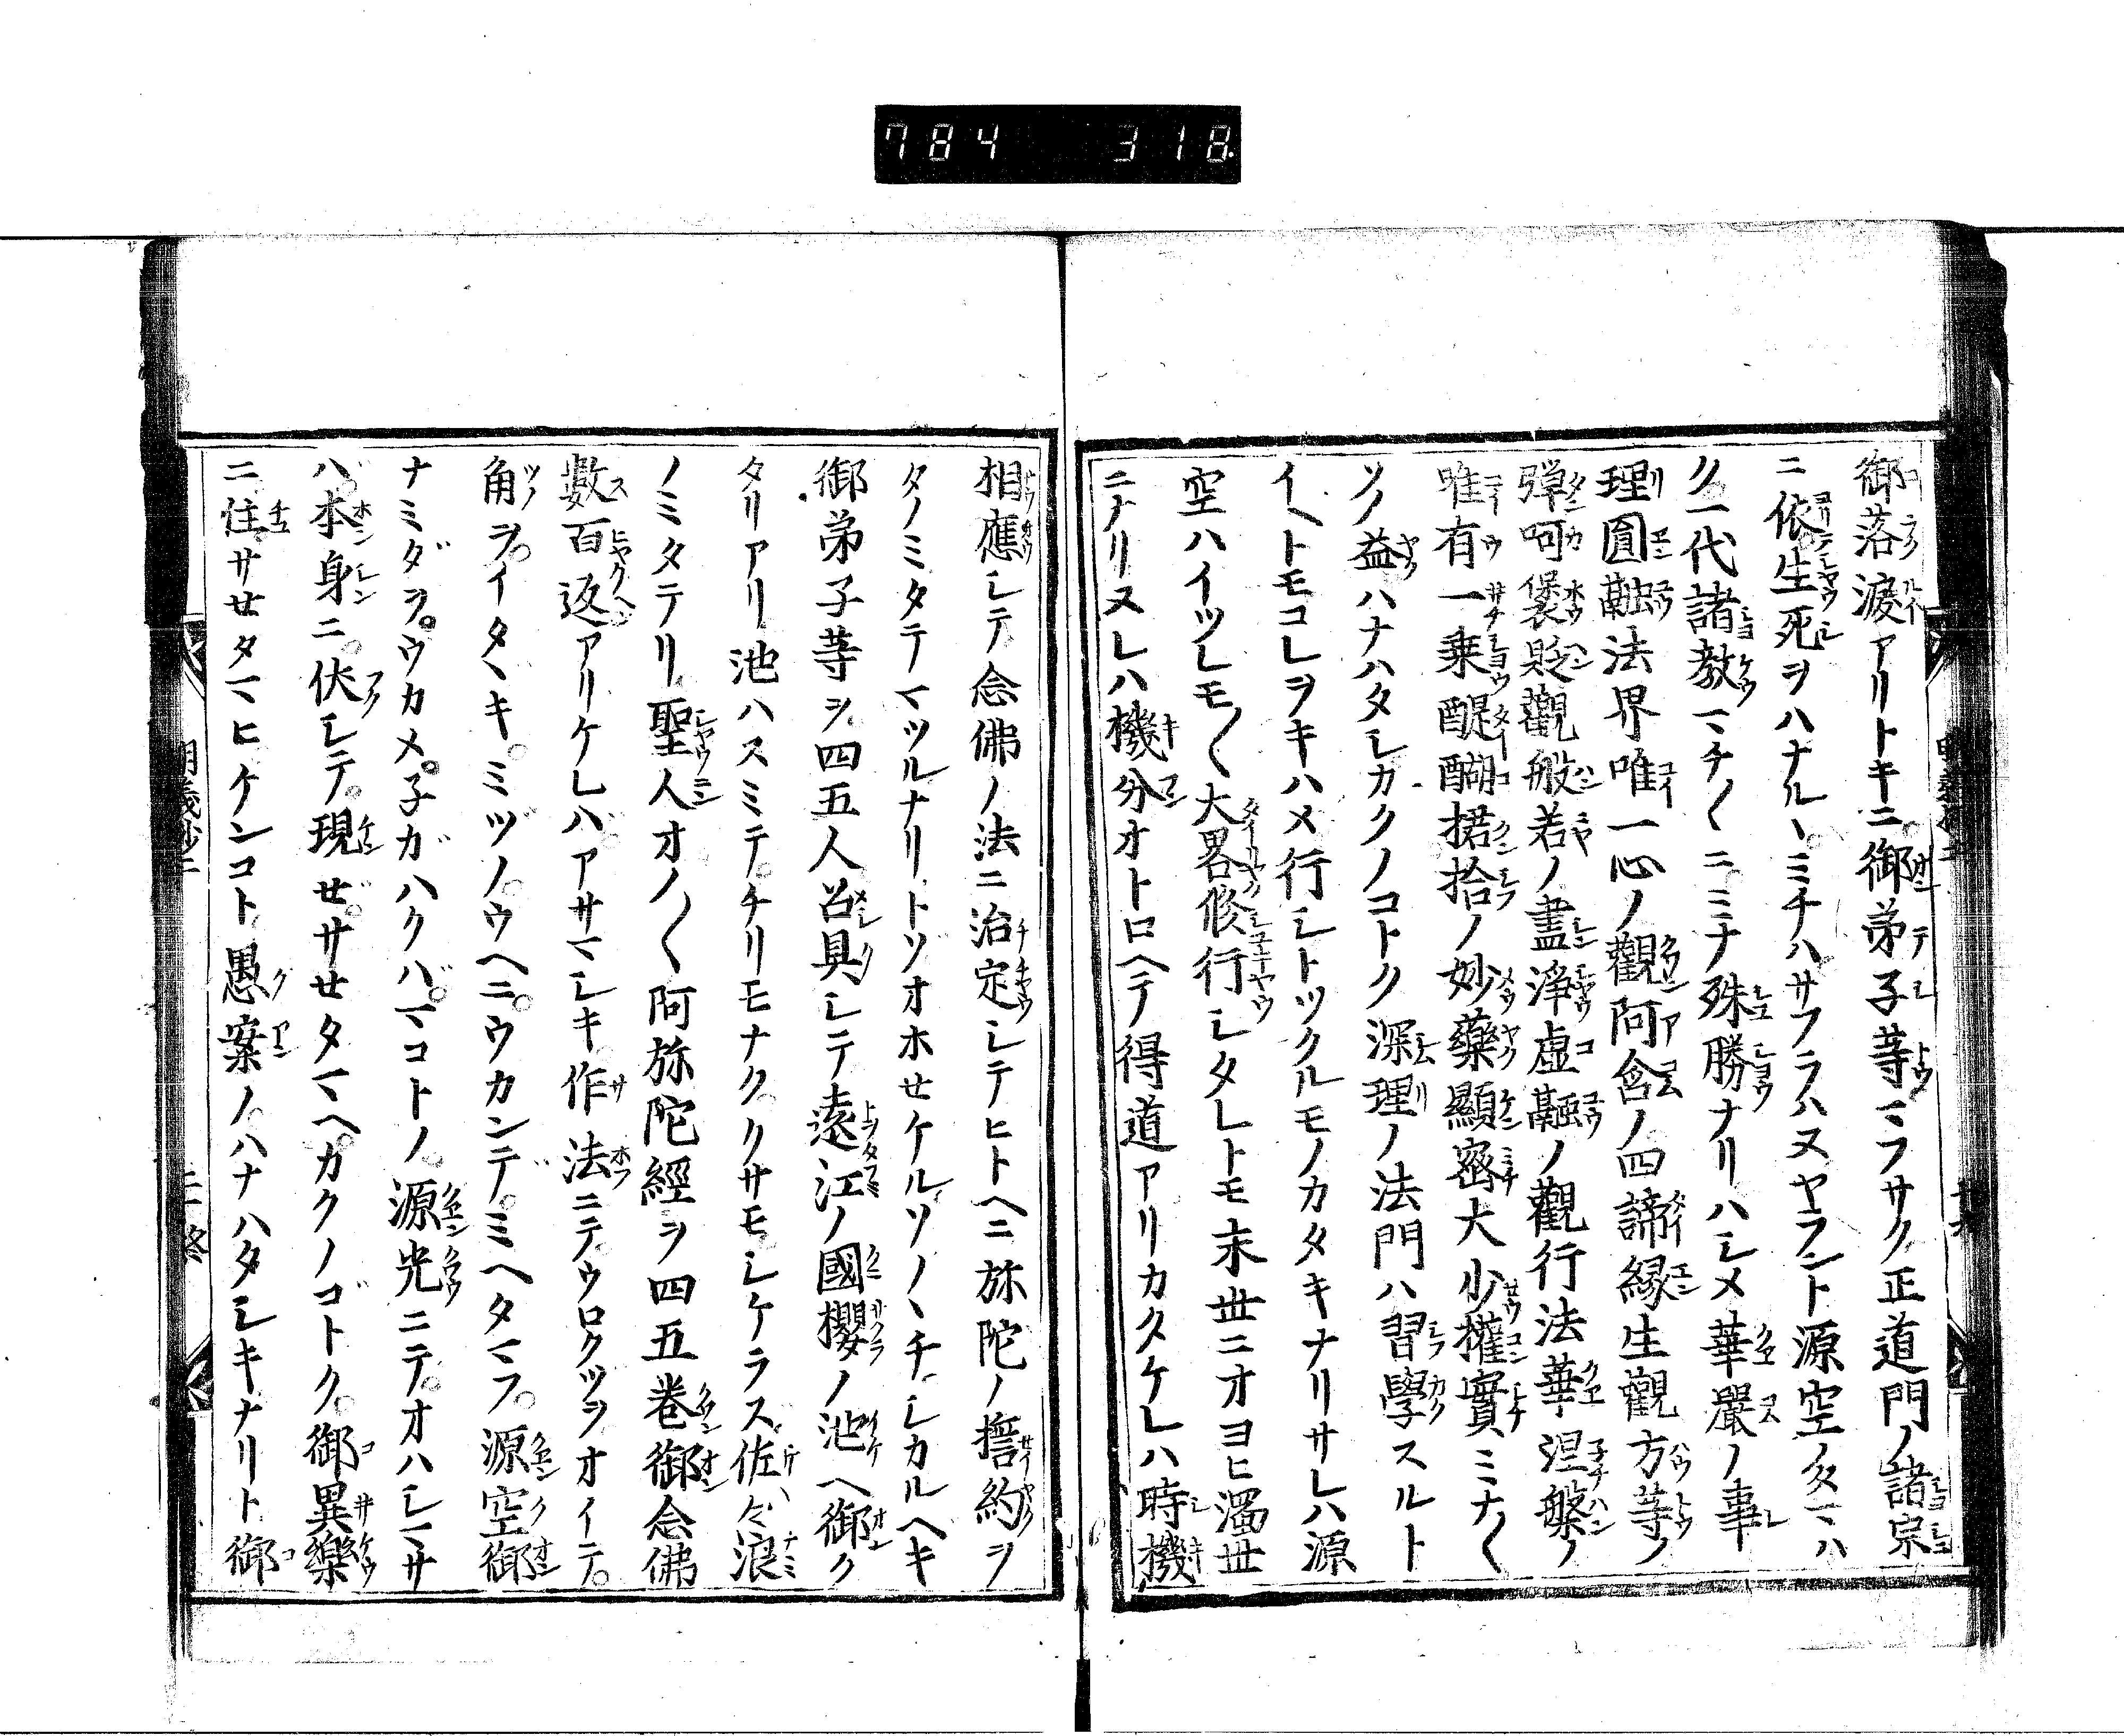 784 318
御落涙アリトキニ御弟子等マフサク正道門ノ諸宗
ニ依生死ヲハナルヽミチハサフラハヌヤラント源空ノタマハ
ク一代諸教マチ〱ニミナ殊勝ナリハシメ華嚴ノ事
理圓融法界唯一心ノ觀阿含ノ四諦縁生觀方等ノ
彈呵褒貶觀般若ノ盡淨虚融ノ觀行法華涅槃ノ
唯有一乗醍醐捃拾ノ妙藥顯密大少權實ミナ〱
ソノ益ハナハタシカクノコトク深理ノ法門ハ習學スルト
イヘトモコレヲキハメ行シトツクルモノカタキナリサレハ源
空ハイツレモ〱大畧修行シタレトモ末世ニオヨヒ濁世
ニナリヌレハ機分オトロヘテ得道アリカタケレハ時機
相應シテ念佛ノ法ニ治定シテヒトヘニ弥陀ノ誓約ヲ
タノミタテマツルナリトゾオホセケルソノヽチシカルヘキ
御弟子等ヲ四五人召具シテ遠江ノ國櫻ノ池ヘ御ク
タリアリ池ハスミテチリモナククサモシケラス佐々浪
ノミタテリ聖人オノ〱阿弥陀經ヲ四五巻御念佛
數百返アリケレハアサマシキ作法ニテウロクツヲオイテ
角ヲイタヽキミヅノウヘニウカンデミヘタマフ源空御
ナミダヲウカメ子ガハクハマコトノ源光ニテオハシマサ
ハ本身ニ伏シテ現ゼサセタマヘカクノゴトク御異樂
ニ住サセタマヒケンコト愚案ノハナハタシキナリト御